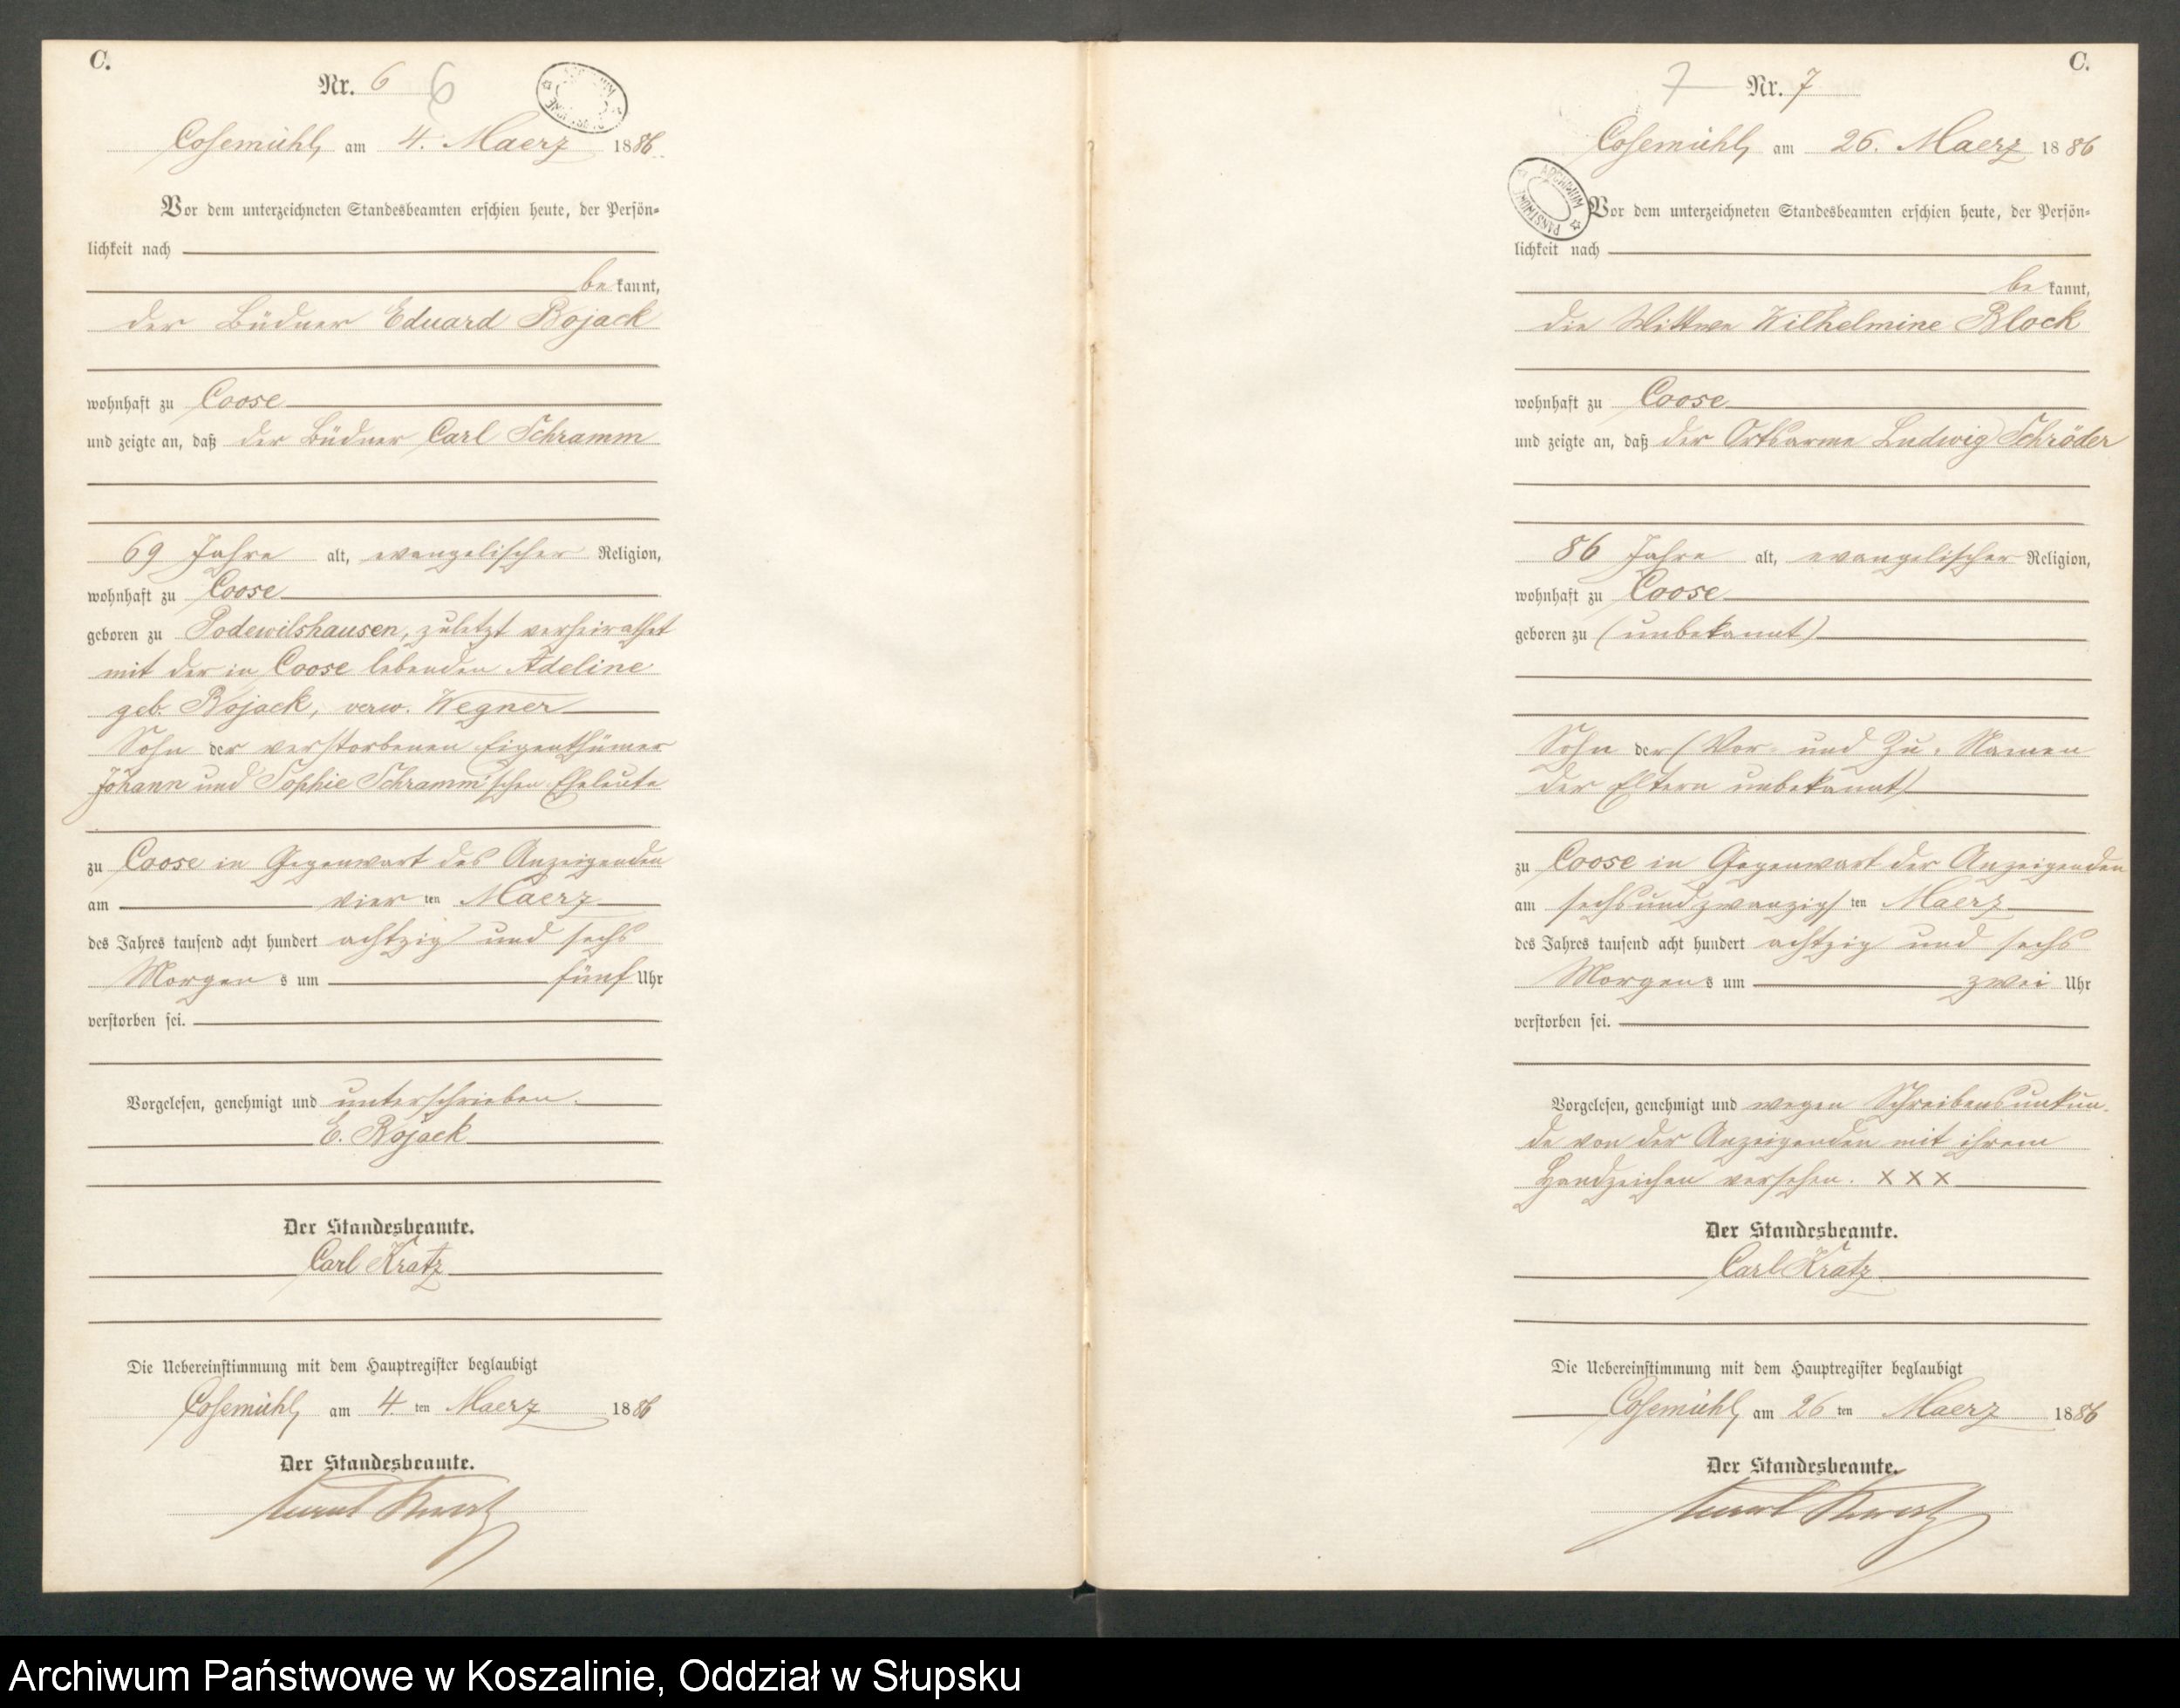 C.
Nr. 6 6
Cosemühl, am 4. Maerz 1886.
Vor dem unterzeichneten Standesbeamten erschien heute, der Persön-
lichkeit nach
be kannt,
der Büdner Eduard Bojack
wohnhaft zu Coose
und zeigte an, daß der Büdner Carl Schramm
69 Jahre alt, evangelischer Religion,
wohnhaft zu Coose
geboren zu Podewilshausen, zuletzt verheirathet
mit der in Coose lebenden Adeline
geb. Bojack, verw. Wegner
Sohn der verstorbenen Eigenthümer
Johann und Sophie Schramm'schen Eheleute
zu Coose in Gegenwart des Anzeigenden
am vier ten Maerz
des Jahres tausend acht hundert achtzig und sechs
Morgen s um fünf Uhr
verstorben sei.
Vorgelesen, genehmigt und unterschrieben.
E. Bojack
Der Standesbeamte.
Carl Kratz
Die Uebereinstimmung mit dem Hauptregister beglaubigt
Cosemühl, am 4 ten Maerz 1886
Der Standesbeamte.
C.
7 Nr. 7
Cosemühl, am 26. Maerz 1886
ARCHIWUM PAŃSTWOWE
Vor dem unterzeichneten Standesbeamten erschien heute, der Persön-
lichkeit nach
be kannt,
die Wittwe Wilhelmine Block
wohnhaft zu Coose
und zeigte an, daß der Ortsarme Ludwig Schröder
86 Jahre alt, evangelischer Religion,
wohnhaft zu Coose
geboren zu (unbekannt)
Sohn der (Vor- und Zu-Namen
der Eltern unbekannt)
zu Coose in Gegenwart der Anzeigenden
am sechsundzwanzigs ten Maerz
des Jahres tausend acht hundert achtzig und sechs
Morgens um zwei Uhr
verstorben sei.
Vorgelesen, genehmigt und wegen Schreibensunkun-
de von der Anzeigenden mit ihrem
Handzeichen versehen. X X X
Der Standesbeamte.
Carl Kratz
Die Uebereinstimmung mit dem Hauptregister beglaubigt
Cosemühl, am 26 ten Maerz 1886
Der Standesbeamte.
Archiwum Państwowe w Koszalinie, Oddział w Słupsku